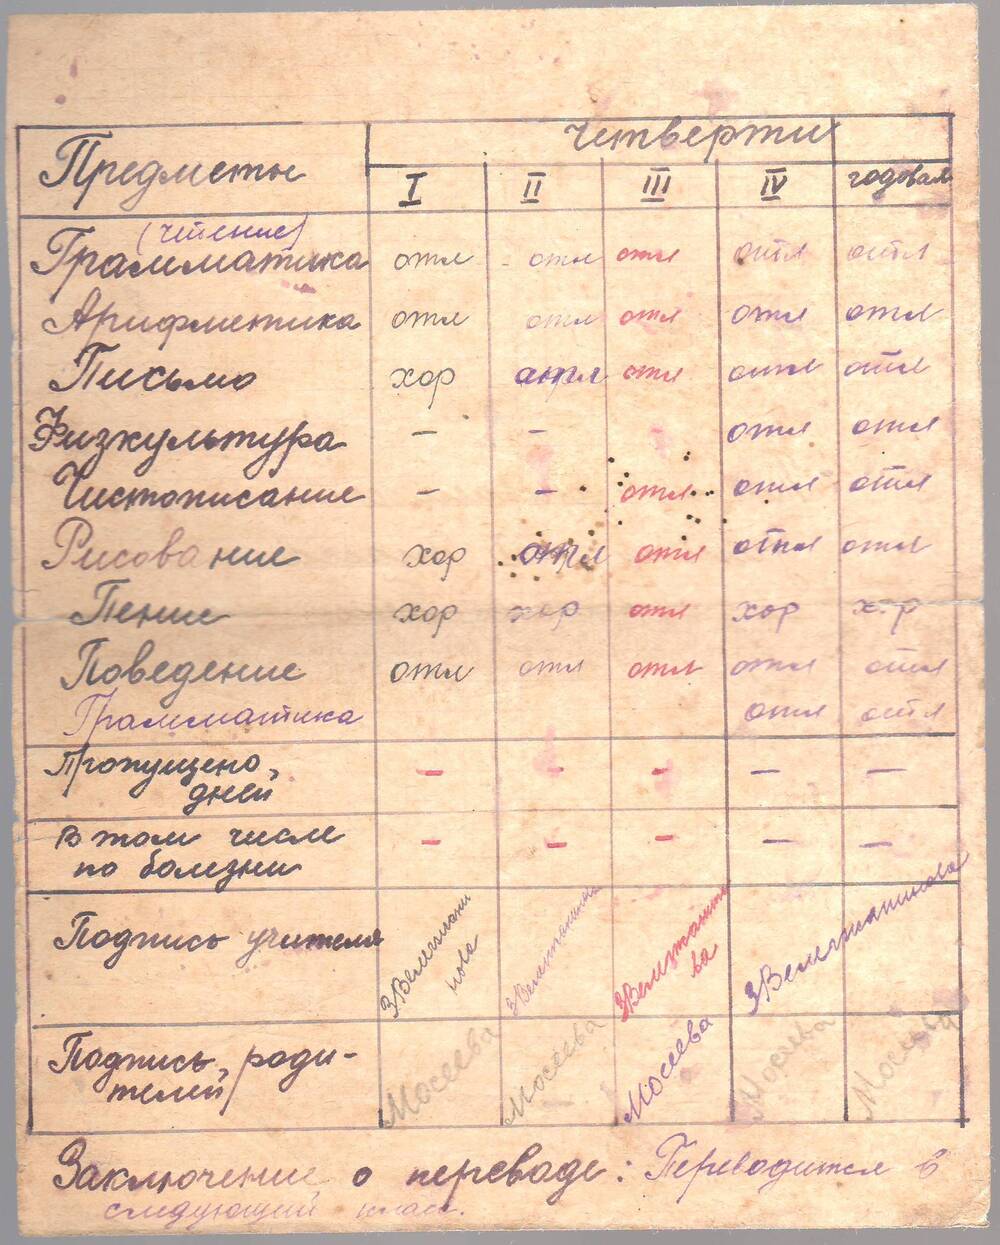 Предметы Четверти
I II III IV годовая
(чтение)
Грамматика отл отл отл отл отл
Арифметика отл отл отл отл отл
Письмо хор отл отл отл отл
Физкультура – – – отл отл
Чистописание – – отл отл отл
Рисование хор отл отл отл отл
Пение хор хор отл хор хор
Поведение отл отл отл отл отл
Грамматика отл отл
Пропущено – – – – –
дней
В том числе – – – – –
по болезни
Подпись учителя
Подпись роди-
телей Мосеева Мосеева Мосеева Мосеева Мосеева
Заключение о переводе: Переводится в
следующий класс.